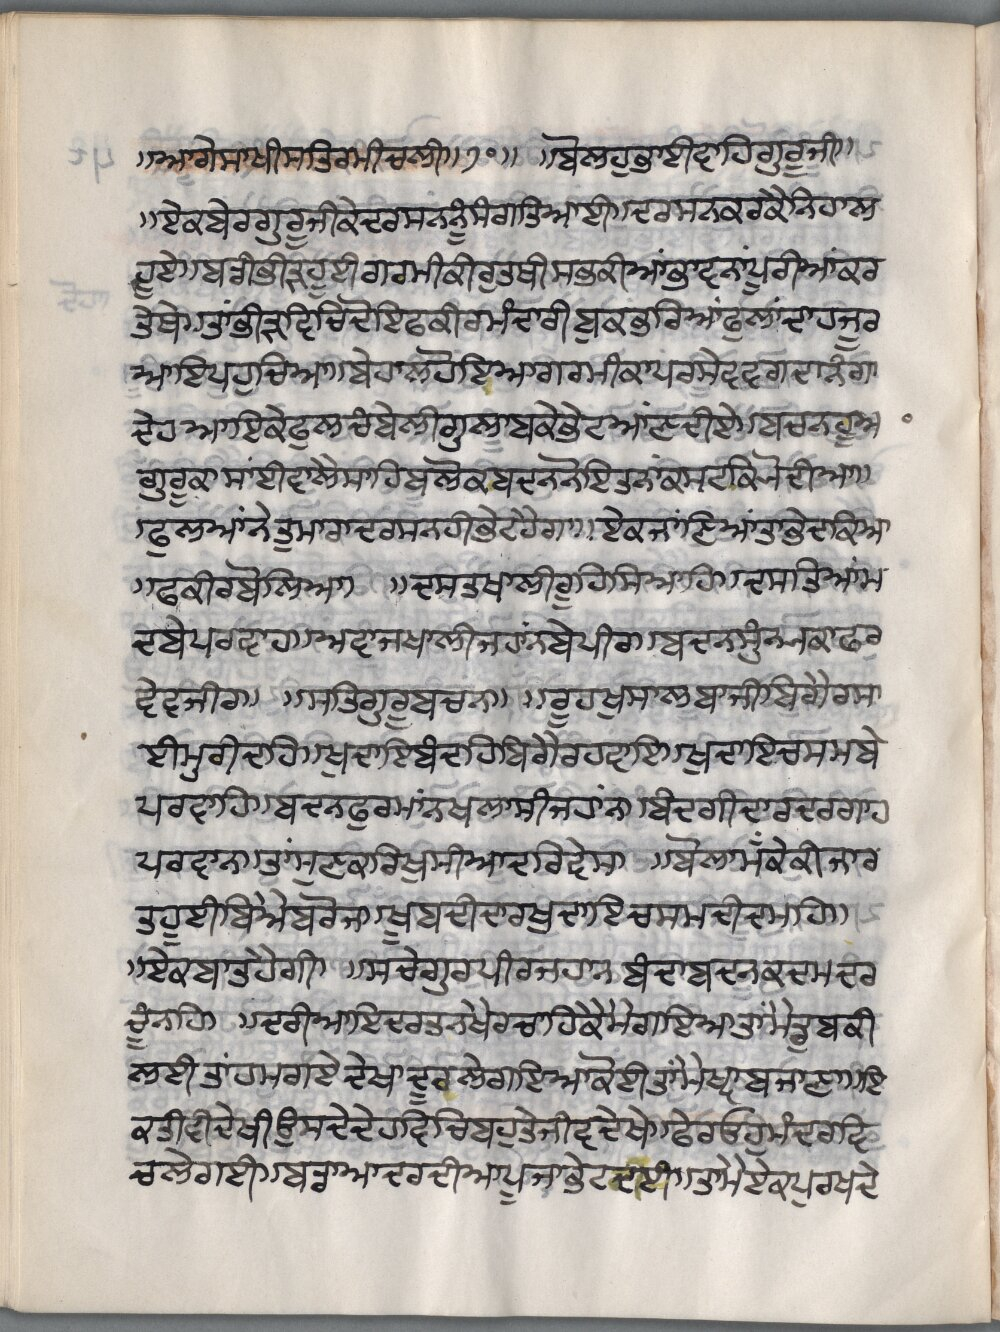 ॥ਆਗੇਸਾਖੀਸਤਿਰਮੀਚਲੀ॥੭੦॥ ॥ਬੋਲਹੁਭਾਈਵਾਹਿਗੁਰੂਜੀ॥
॥ਏਕਬੇਰਗੁਰੂਜੀਕੇਦਰਸਨਨੂੰਸੰਗਤਿਆਈ॥ਦਰਸਨਕਰਕੈਨਿਹਾਲ
ਹੂਏ॥ਬੜੀਭੀੜਹੂਈਗਰਮੀਕੀਰੁਤਥੀਸਭਕੀਆਂਭਾਵਨਾਂਪੂਰੀਆਂਕਰ
ਤੇਥੇ॥ਤਾਂਭੀੜਵਿਚਿਦੋਇਫਕੀਰਮੰਦਾਰੀਬੁਕਭਰਿਆਂਫੁਲਾਂਦਾਹਜੂਰ
ਆਇਪਹੁਚਿਆ॥ਬੇਹਾਲਹੋਇਆਗਰਮੀਕਾਪਰਸੇਵਵਗਦਾਨੰਗਾ
ਦੇਹਆਇਕੇਫੁਲਚੰਬੇਲੀਗੁਲਾਬਕੇਭੇਟਆਂਣਦੀਏ॥ਬਚਨਹੂਅ
ਗੁਰੂਕਾਸਾਂਈਵਾਲੇਸਾਹਿਬੁਲੋਕਬਦਨਨੋਇਤਨਾਂਕਸਟਕਿਜੋਦੀਆ॥
ਫੁਲਆਂਨੇਤੁਮਾਰਾਦਰਸਨਹੀਭੇਟਹੈਗਾ॥ਏਕਜਾਂਣਿਆਂਤਾਭੇਦਕਿਆ
॥ਫਕੀਰਬੋਲਿਆ॥ ॥ਦਸਤਖਾਲੀਰੂਹਿਸਿਆਹਿ॥ਦਸਤਿਆਂਮ
ਦਬੇਪਰਵਾਹ॥ਅਵਾਜਖਾਲੀਜਹਾਂਨਬੇਪੀਰਾ॥ਬਦਨਸੁੰਨਨਕਾਫਰ
ਵੇਵਜੀਰਾ॥ ॥ਸਤਿਗੁਰੂਬਚਨ॥ ॥ਰੂਹਖੁਸਾਲਬਾਜੀਬਿਗੈਰਸਾ
ਈਮੁਰੀਦਾਹਿ॥ਖੁਦਾਇਬੰਦਹਿਬਿਗੈਰਹਵਾਇ॥ਖੁਦਾਇਚਸਮਬੇ
ਪਰਵਾਹਿ॥ਬਦਨਫੁਰਮਾਂਨਖਲਾਸੀਜਹਾਂਨਾ॥ਬੰਦਗੀਦਾਰਦਰਗਾਹ
ਪਰਵਾਨਾ॥ਤਾਂਸੁਣਕਰਿਖੁਸੀਆਦਰਿਵੇਸਾ ॥ਬੋਲਾਮੱਕੇਕੀਜਾਰ
ਤਹੂਈਥਿਐਬਰੋਜਾ॥ਖੂਬਦੀਦਾਰਖੁਦਾਇਚਸਮਦੀਦਮਹਿ॥
॥ਏਕਬਾਤਹੈਗੀ॥ ॥ਸਚੇਗੁਰਪੀਰਜਹਾਨਬੰਦਾਬਦਨਕਦਮਦਰ
ਚੂੰਨਹਿ॥ ॥ਦਰੀਆਇਦਰਤਨਖੈਰਚਾਹਿਕੈਮੈਗਇਆਤਾਂਮੈਤੂਬਕੀ
ਲਈਤਾਂਹਮਗਏਦੇਖਾਦੂਰਲੇਗਇਆਕੋਈਤਾਂਮੈਖ੍ਵਾਬਜਾਣਾ॥ਇ
ਕਤੀਵੀਦੇਖੀਉਸਦੇਦੇਹਵਿਚਿਬਹੁਤੇਜੀਵਦੇਖੇ॥ਫੇਰਓਹੁਮੰਦਰਵਿ
ਚਲੇਗਈ॥ਬੜਾਆਦਰਦੀਆਪੂਜਾਭੇਟਦਾਈ॥ਤਾਮੈਏਕਪੁਰਖਦੇ